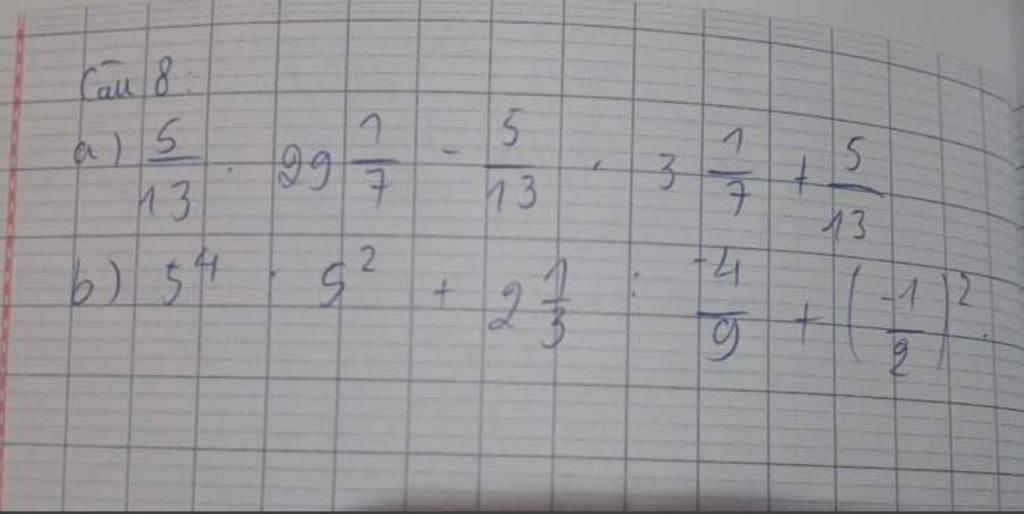 Câu 8:
a) 5/13 . 29 1/7 - 5/13 . 3 1/7 + 5/13
b) 5^4 : 5^2 + 2 1/3 : -4/9 + (-1/2)^2.